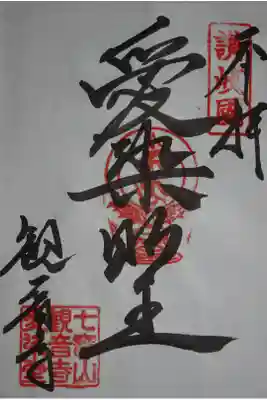 奉拝
讃州國
愛染明王
観音寺
七宝山
観音寺